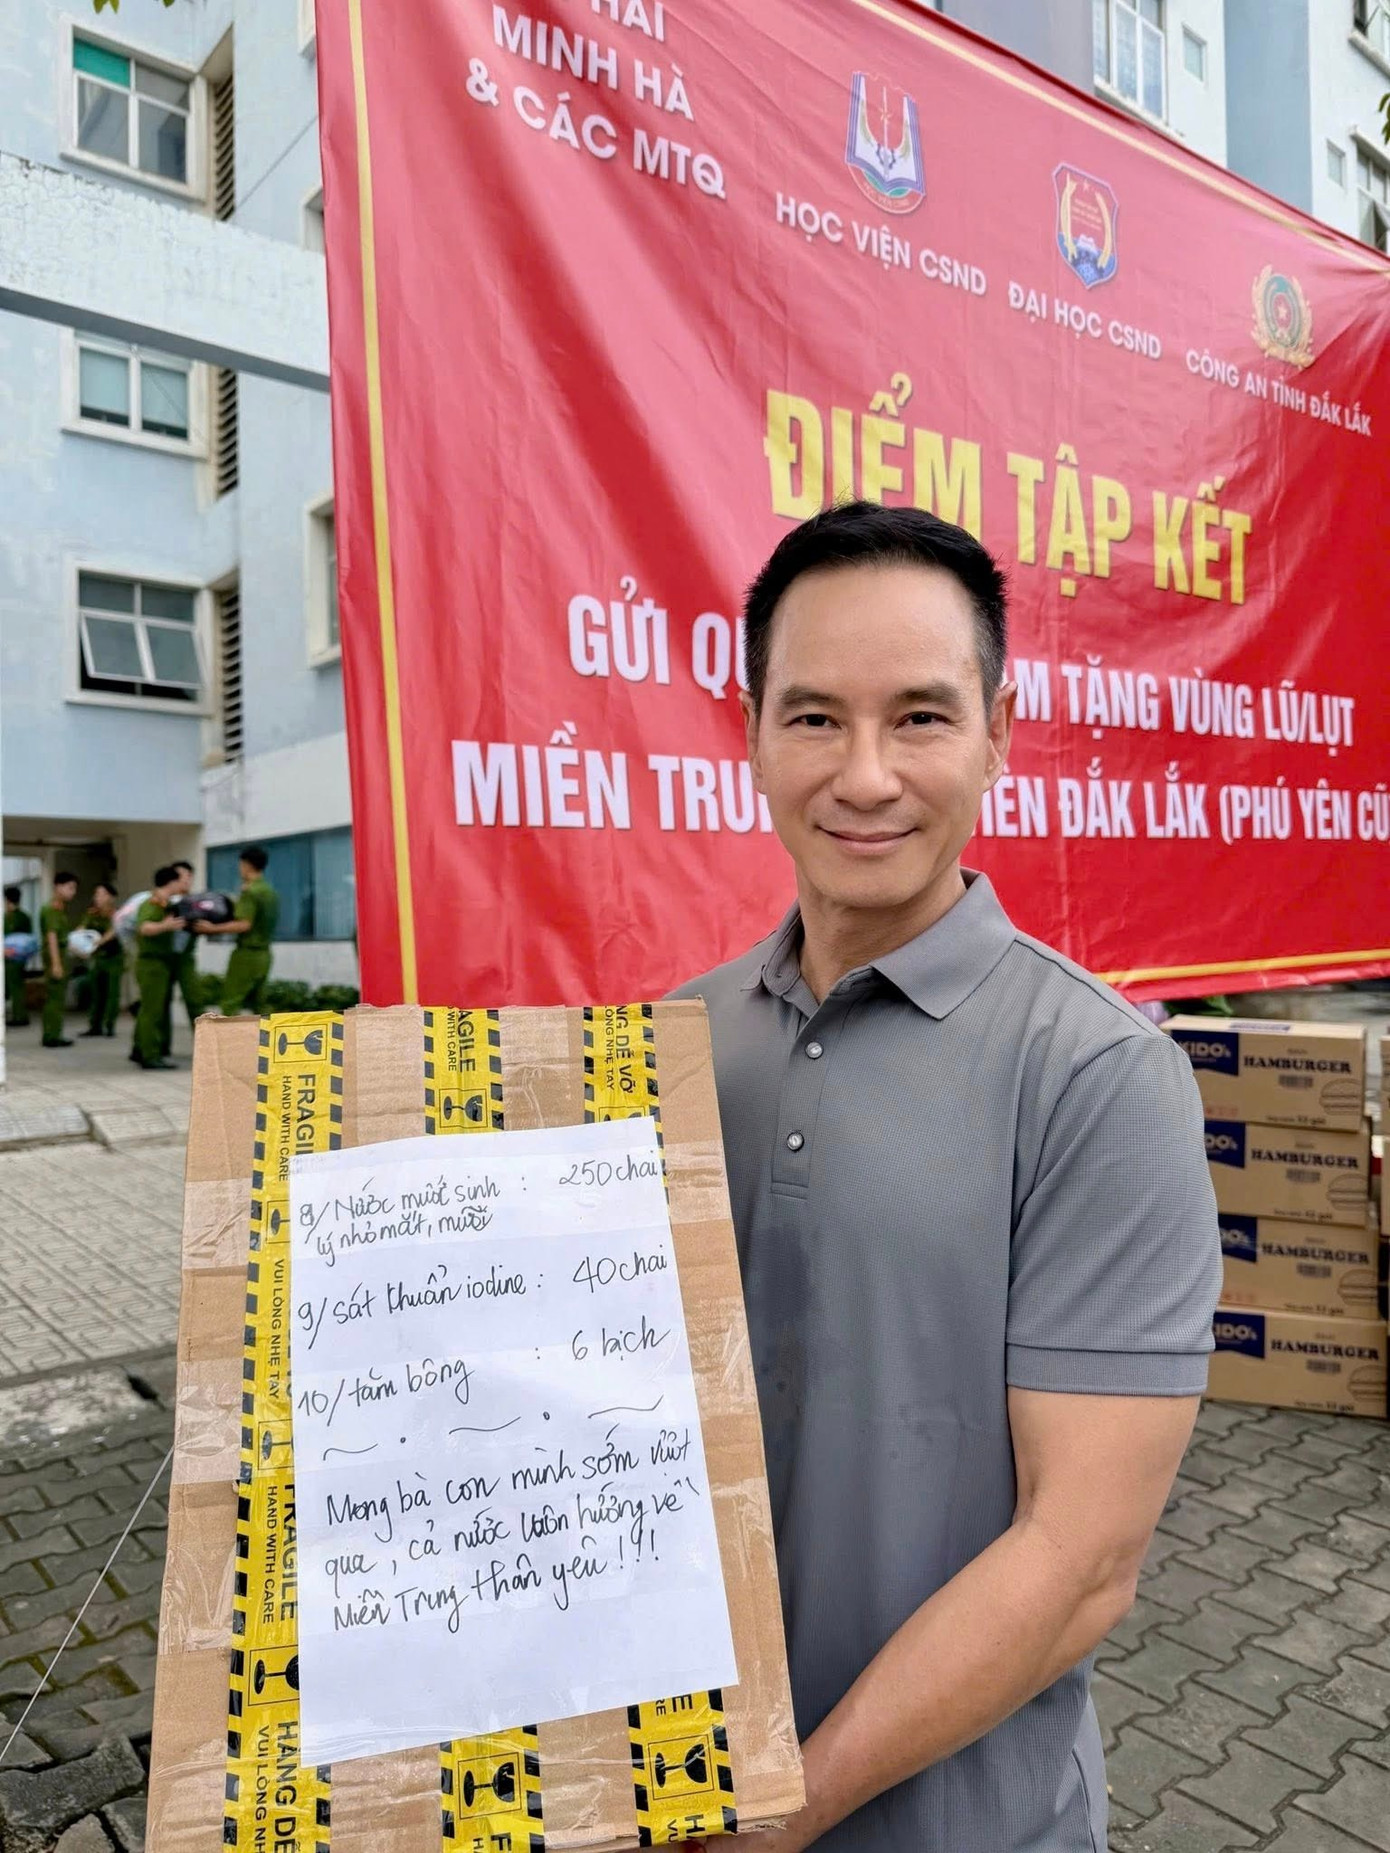 HẢI
MINH HÀ
& CÁC MTQ
HỌC VIỆN CSND
ĐẠI HỌC CSND
CÔNG AN TỈNH ĐẮK LẮK
ĐIỂM TẬP KẾT
GỬI QU M TẶNG VÙNG LŨ/LỤT
MIỀN TRU IÊN ĐẮK LẮK (PHÚ YÊN CŨ
KIDO's
HAMBURGER
KIDO's
HAMBURGER
KIDO's
HAMBURGER
KIDO's
HAMBURGER
FRAGILE
HAND WITH CARE
VUI LÒNG NHẸ TAY
FRAGILE
HAND WITH CARE
HÀNG DỄ
VUI LÒNG NH
AGILE
WITH CARE
NG DỄ VỠ
ÒNG NHẸ TAY
8/ Nước muối sinh : 250 chai
lý nhỏ mắt, mũi
9/ Sát khuẩn iodine : 40 chai
10/ tăm bông : 6 bịch
Mong bà con mình sớm vượt
qua, cả nước luôn hướng về
Miền Trung thân yêu !!!